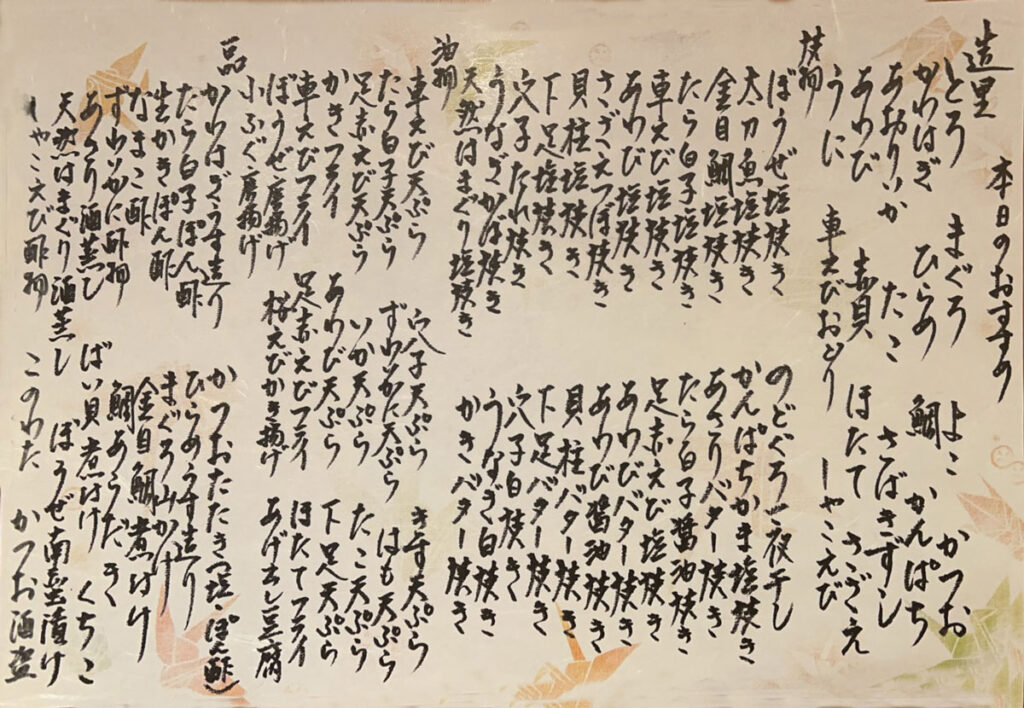 本日のおすすめ
造里
とろ　まぐろ　よこ　かつお
かわはぎ　ひらめ　鯛　かんぱち
あおりいか　たこ　さばきずし
あわび　赤貝　ほたて　さざえ
うに　車えびおどり　しゃこえび
焼物
ぼうぜ塩焼き　のどぐろ一夜干し
太刀魚塩焼き　かんぱちかま塩焼き
金目鯛塩焼き　あさりバター焼き
たら白子塩焼き　たら白子醤油焼き
車えび塩焼き　足赤えび塩焼き
あわび塩焼き　あわびバター焼き
さざえつぼ焼き　あわび醤油焼き
貝柱塩焼き　貝柱バター焼き
下足塩焼き　下足バター焼き
穴子たれ焼き　穴子白焼き
うなぎかば焼き　うなぎ白焼き
天然はまぐり塩焼き　かきバター焼き
油物
車えび天ぷら　穴子天ぷら　きす天ぷら
たら白子天ぷら　ずわいかに天ぷら　はも天ぷら
足赤えび天ぷら　いか天ぷら　たこ天ぷら
かきフライ　あわび天ぷら　下足天ぷら
車えびフライ　足赤えびフライ　ほたてフライ
ぼうぜ唐揚げ　桜えびかき揚げ　あげ出し豆腐
小ふぐ唐揚げ
一品
かわはぎうす造り　かつおたたき（塩・ぽん酢）
たら白子ぽん酢　ひらめうす造り
生かきぽん酢　まぐろ山かけ
なまこ酢　金目鯛煮付け
ずわいかに酢物　鯛あらだき
あさり酒蒸し　ばい貝煮付け　くちこ
天然はまぐり酒蒸し　ぼうぜ南蛮漬け
しゃこえび酢物　このわた　かつお酒盗